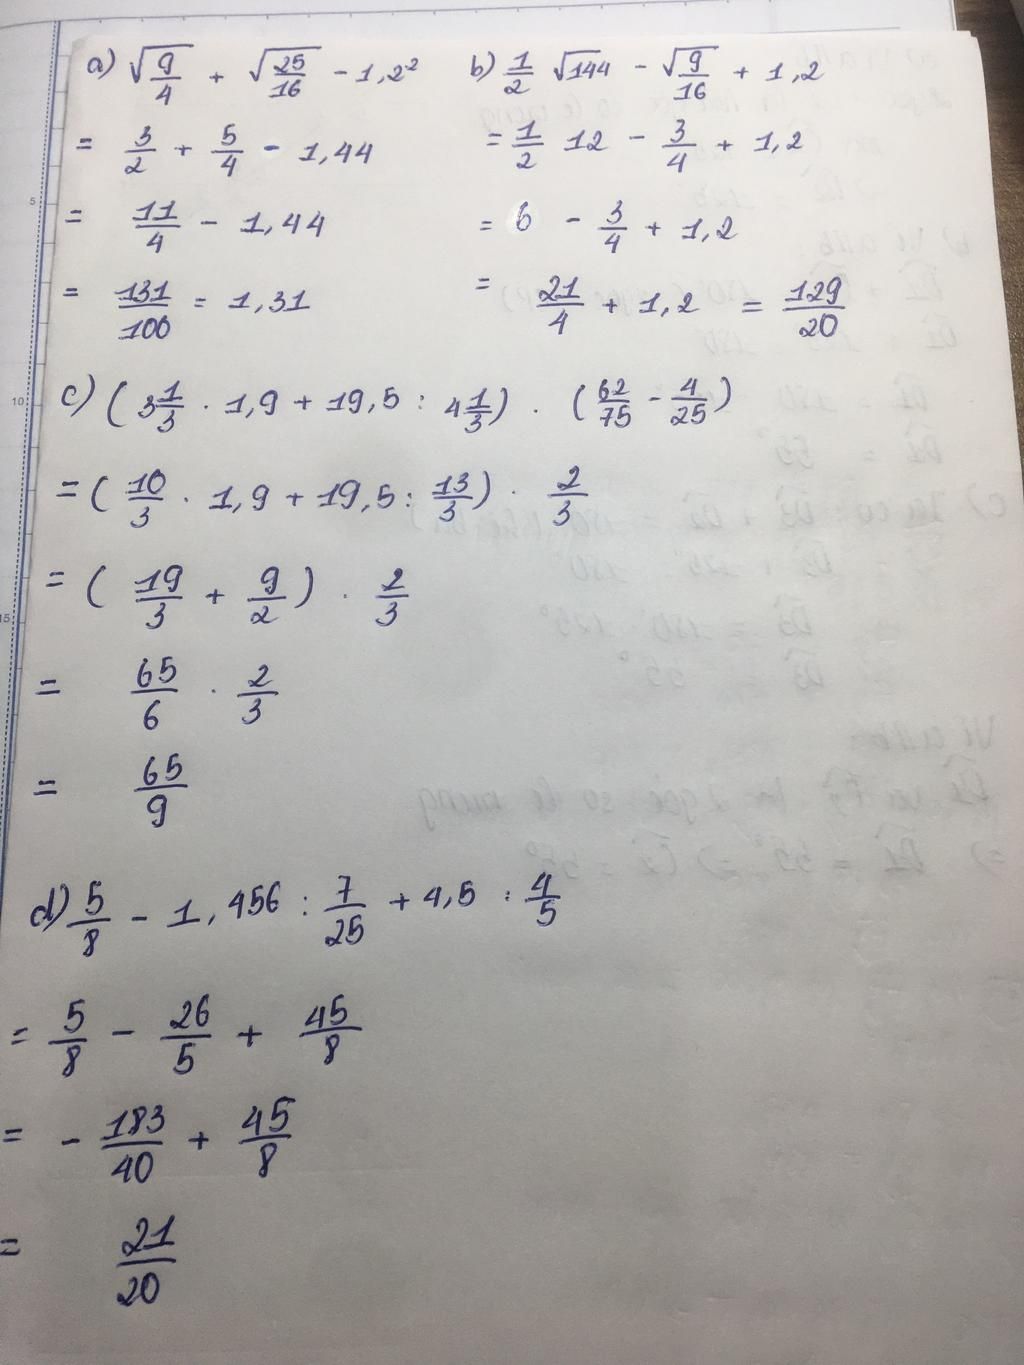 a) √(9/4) + √(25/16) - 1,2² b) 1/2 √144 - √(9/16) + 1,2
= 3/2 + 5/4 - 1,44 = 1/2 12 - 3/4 + 1,2
= 11/4 - 1,44 = 6 - 3/4 + 1,2
= 131/100 = 1,31 = 21/4 + 1,2 = 129/20
c) (3 1/3 . 1,9 + 19,5 : 4 1/3) . (62/75 - 4/25)
= (10/3 . 1,9 + 19,5 : 13/3) . 2/3
= (19/3 + 9/2) . 2/3
= 65/6 . 2/3
= 65/9
d) 5/8 - 1,456 : 7/25 + 4,5 : 4/5
= 5/8 - 26/5 + 45/8
= - 183/40 + 45/8
= 21/20